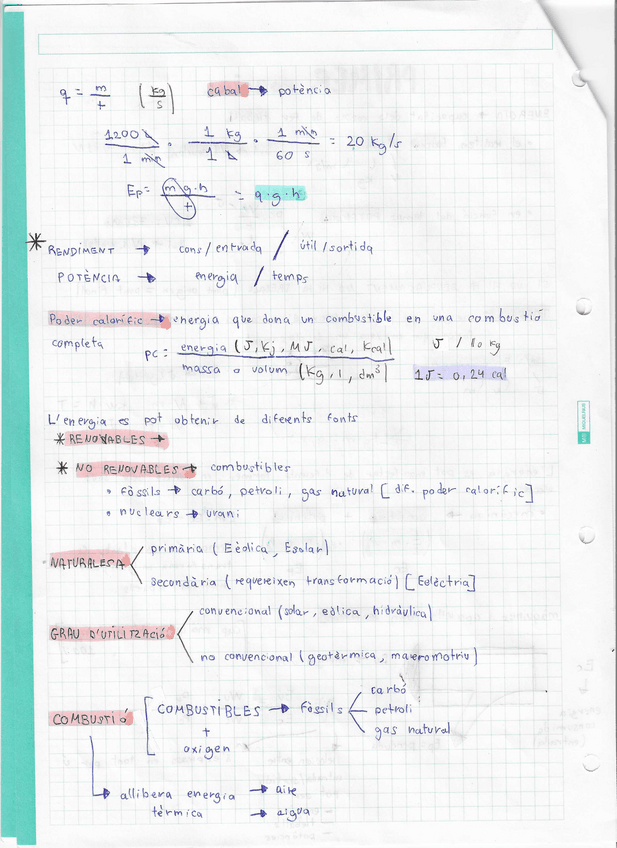 q = m/t (kg/s) cabal → potència
1200 l/1 min · 1 kg/1 l · 1 min/60 s = 20 kg/s
Ep = m·g·h/t = q·g·h
* RENDIMENT → cons/entrada / útil/sortida
POTÈNCIA → energia / temps
Poder calorífic → energia que dona un combustible en una combustió
completa
pc = energia (J, Kj, MJ, cal, Kcal)/massa o volum (Kg, l, dm³) J / 1o kg
1J = 0,24 cal
L'energia es pot obtenir de diferents fonts
* RENOVABLES →
* NO RENOVABLES → combustibles
• fòssils → carbó, petroli, gas natural [dif. poder calorífic]
• nuclears → urani
NATURALESA
primària (Eèolica, Esolar)
secundària (requereixen transformació) [Eelèctria]
GRAU D'UTILITZACIÓ
convencional (solar, eòlica, hidràulica)
no convencional (geotèrmica, mareomotriu)
COMBUSTIÓ
COMBUSTIBLES → fòssils
carbó
petroli
gas natural
+
oxigen
allibera energia → aire
tèrmica → aigua